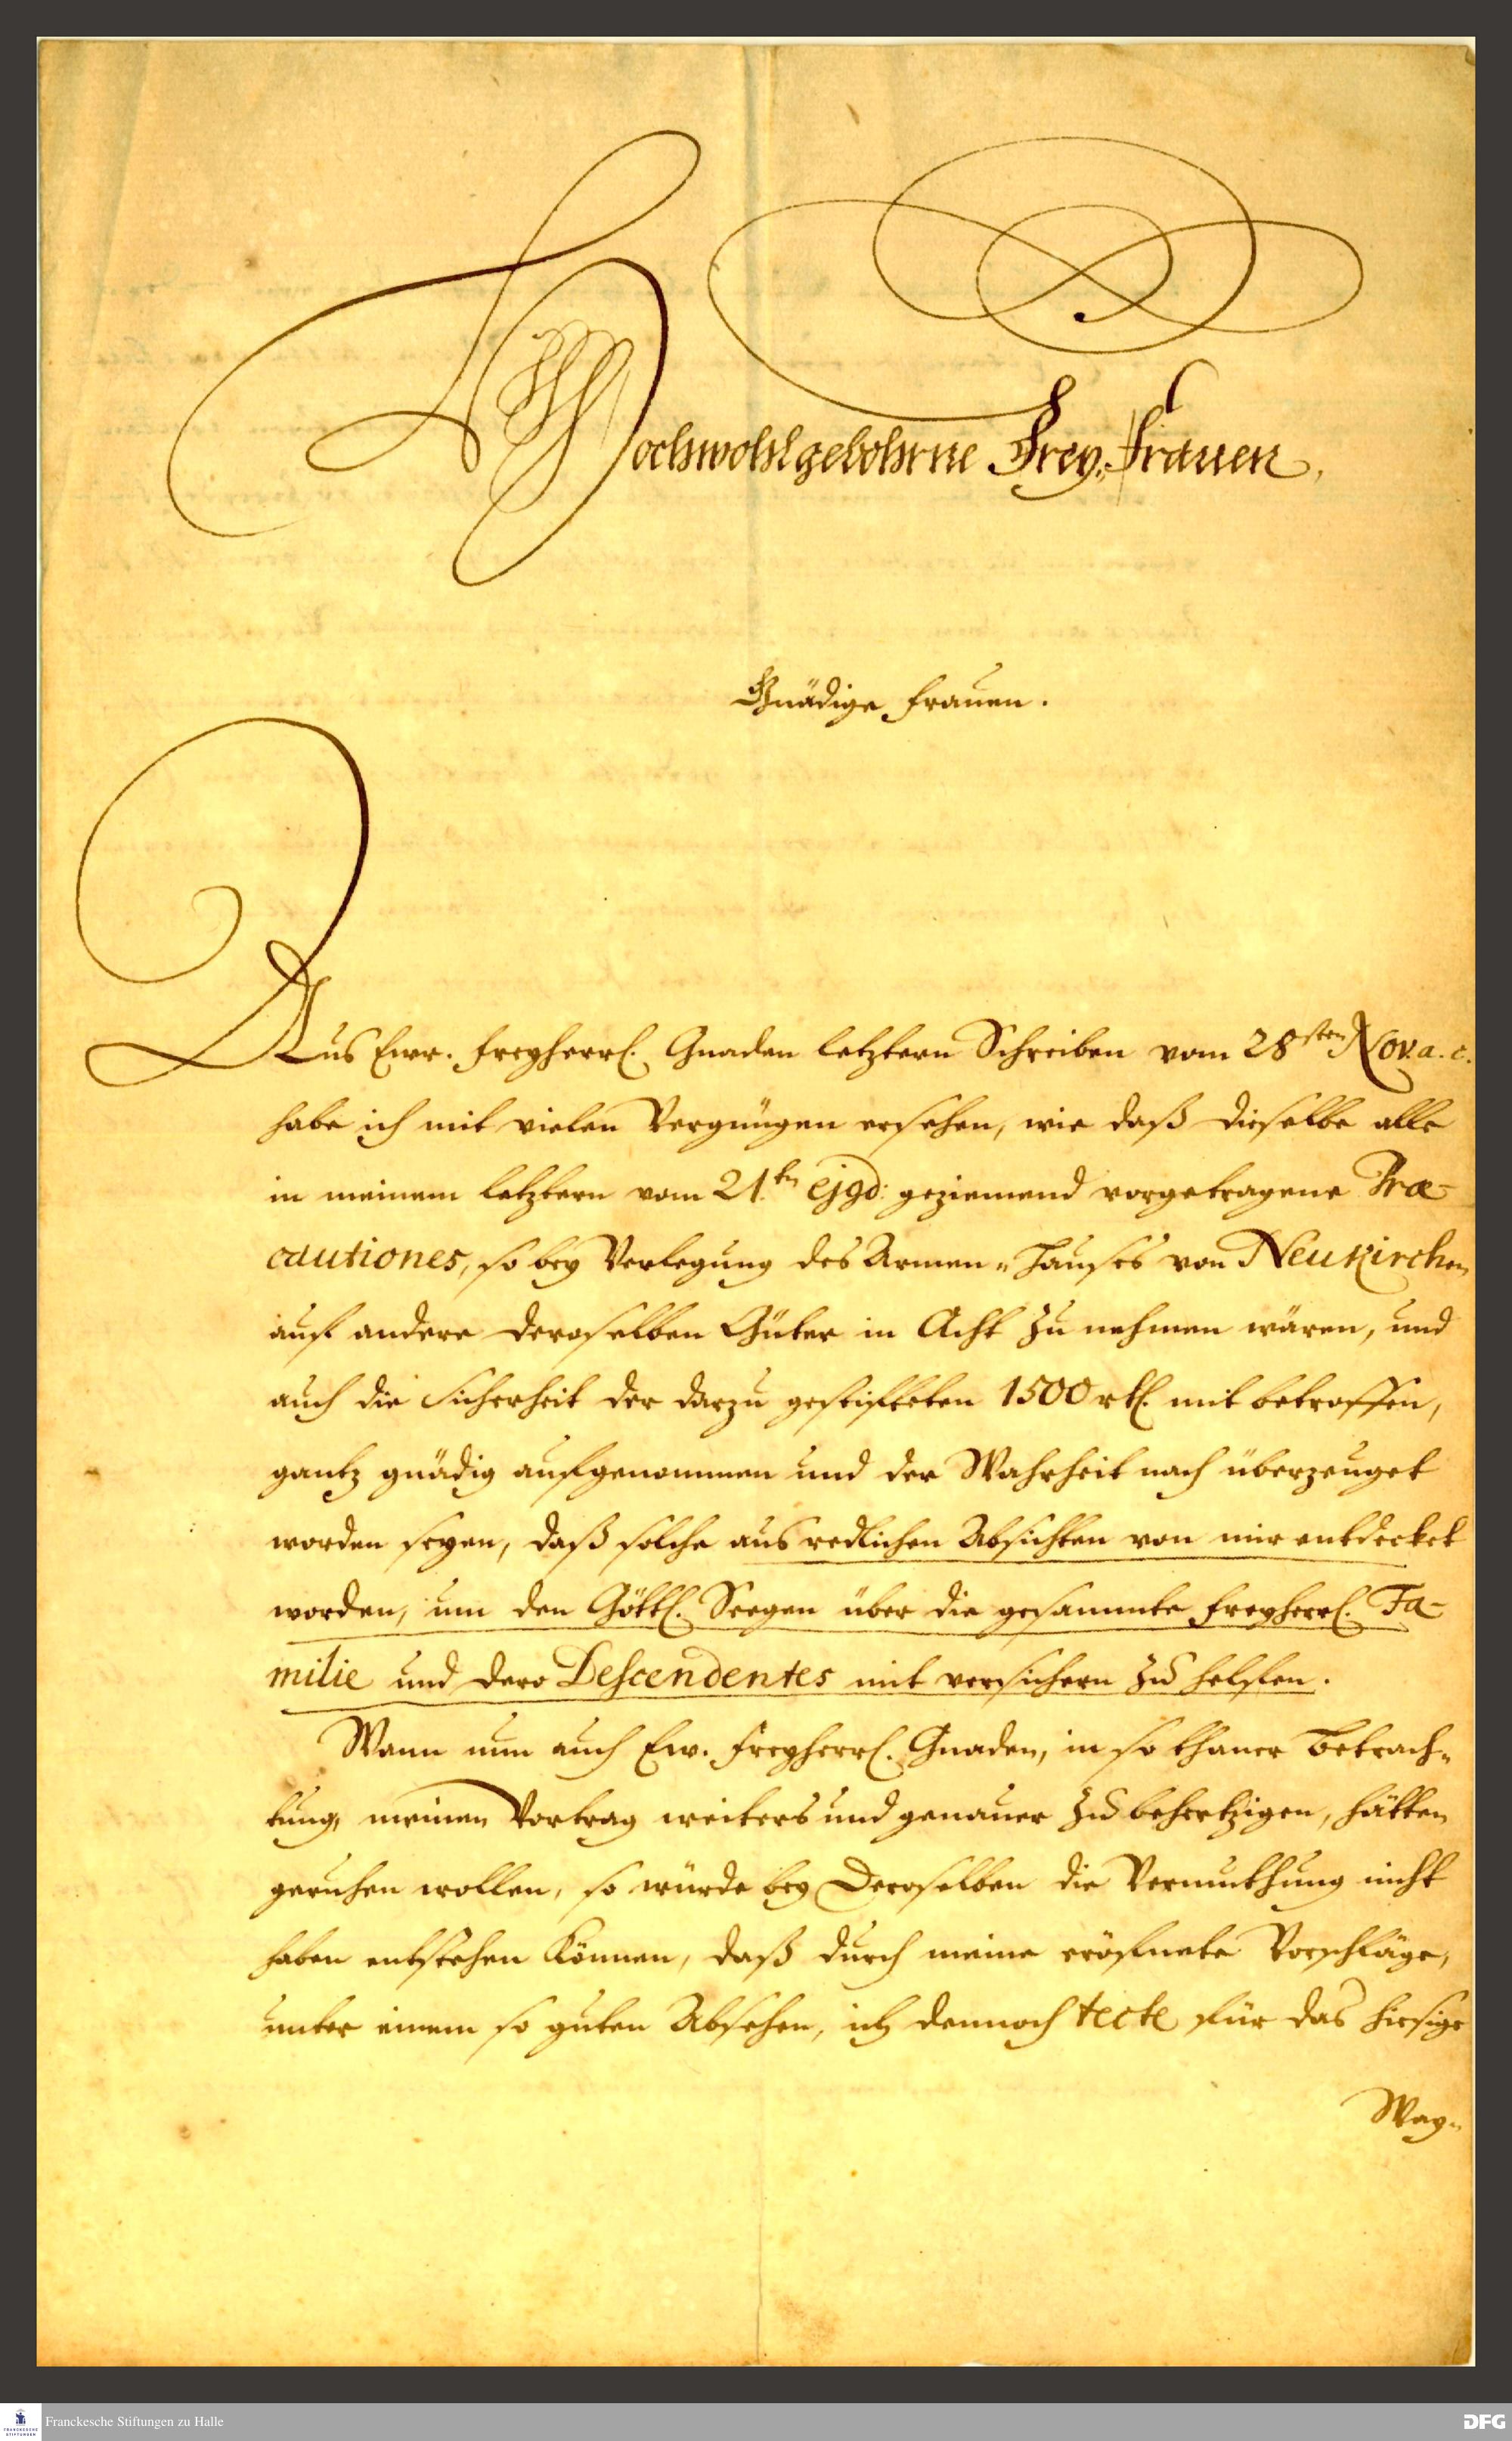 Hochwohlgebohrne Frey-Frauen,
Gnädige Frauen.
Aus Ewr. Freyherrl. Gnaden letztern Schreiben vom 28sten Nov. a. c.
habe ich mit vielen Vergnügen ersehen, wie daß dieselbe alle
in meinem letztern vom 21.tn ejgd: geziemend vorgetragene Præ-
cautiones, so bey Verlegung des Armen-Hauses von Neukirchen
auf andere deroselben Güter in Acht zu nehmen wären, und
auch die Sicherheit der darzu gestiffteten 1500 rtl. mit betroffen,
gantz gnädig aufgenommen und der Wahrheit nach überzeuget
worden seyen, daß solche aus redlichen Absichten von mir entdecket
worden, um den Göttl. Seegen über die gesammte Freyherrl. Fa-
milie und dero Descendentes mit versichern zu helffen.
Wann nun auch Ew. Freyherrl. Gnaden, in so thaner Betrach-
tung, meinen Vortrag weiters und genauer zu behertzigen, hätten
geruhen wollen, so würde bey Deroselben die Vermuthung nicht
haben entstehen können, daß durch meine eröfnete Vorschläge,
unter einem so guten Absehen, ich dennoch tecte für das hiesige
Way-
Franckesche Stiftungen zu Halle
DFG
FRANCKESCHE
STIFTUNGEN